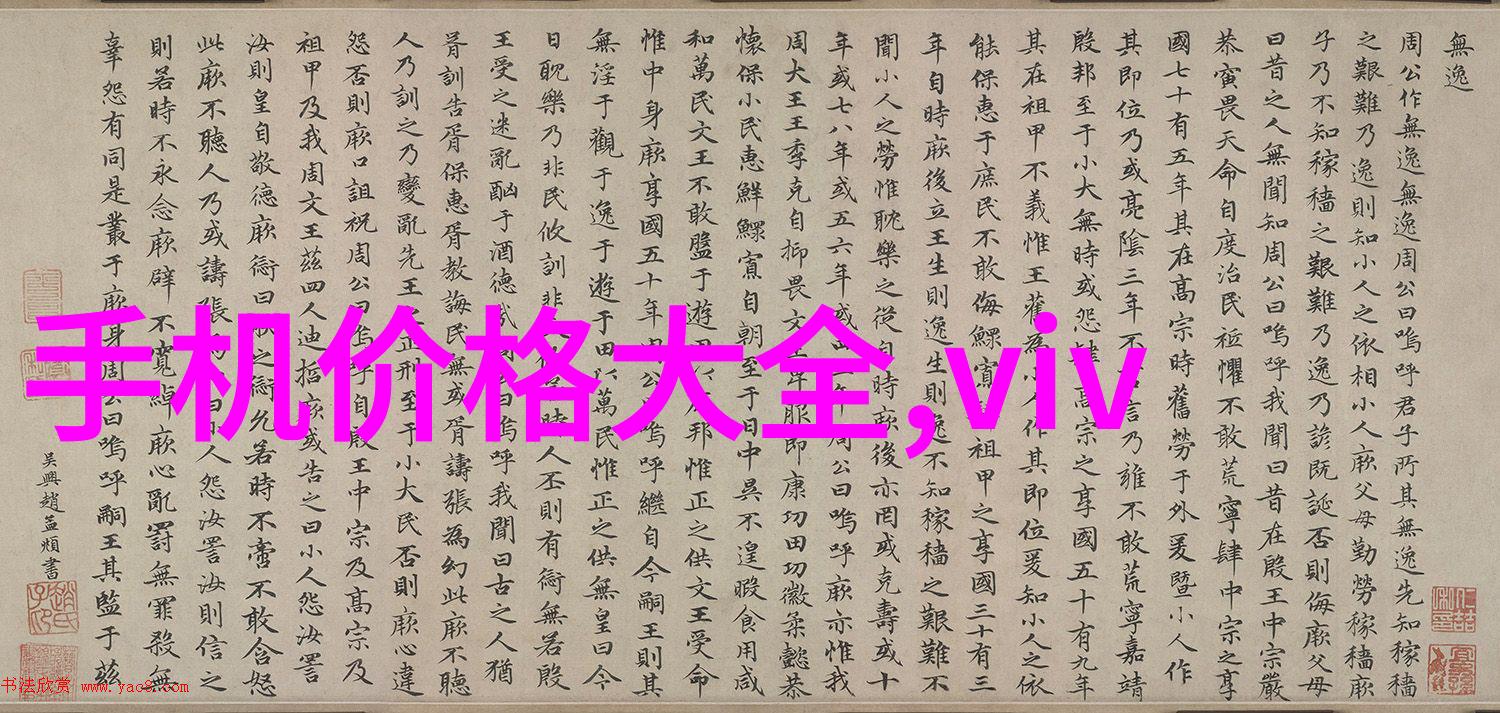 無逸
周公作無逸無逸周公曰嗚呼君子所其無逸先知稼穡
之艱難乃逸則知小人之依相小人厥父母勤勞稼穡厥
子乃不知稼穡之艱難乃逸乃諺既誕否則侮厥父母
曰昔之人無聞知周公曰嗚呼我聞曰昔在殷王中宗嚴
恭寅畏天命自度治民祗懼不敢荒寧肆中宗之享
國七十有五年其在高宗時舊勞于外爰暨小人作
其即位乃或亮陰三年不言乃雍不敢荒寧嘉靖
殷邦至于小大無時或怨肆高宗之享國五十有九年
其在祖甲不義惟王舊為小人作其即位爰知小人之依
能保惠于庶民不敢侮鰥寡祖甲之享國三十有三
年自時厥後立王生則逸生則逸不知稼穡之艱難不
聞小人之勞惟耽樂之從自時厥後亦罔或克壽或十
年或七八年或五六年或四年周公曰嗚呼厥亦惟我
周大王王季克自抑畏文王卑服即康功田功徽柔懿恭
懷保小民惠鮮鰥寡自朝至于日中昃不遑暇食用咸
和萬民文王不敢盤于遊邦惟正之供文王受命
惟中身厥享國五十年公嗚呼繼自今嗣王則其
無淫于觀于逸于遊于田以萬民惟正之供無皇曰今
日耽樂乃非民攸訓非時人丕則有愆無若殷
王受之迷亂酗于酒德曰嗚呼我聞曰古之人猶
胥訓告胥保惠胥教誨民無或胥譸張為幻此厥不聽
人乃訓之乃變亂先王正刑至于小大民否則厥心違
怨否則厥口詛祝周公曰嗚呼自殷王中宗及高宗及
祖甲及我周文王茲四人迪哲厥或告之曰小人怨汝詈
汝則皇自敬德厥愆曰朕之愆允若時不啻不敢含怒
此厥不聽人乃或譸張曰人怨汝詈汝則信之
則若時不永念厥辟不寬綽厥心亂罰無罪殺無
辜怨有同是叢于厥身周公曰嗚呼嗣王其監于茲
吳興趙孟頫書
手机价格大全,viv
书法欣赏 www.yac8.com